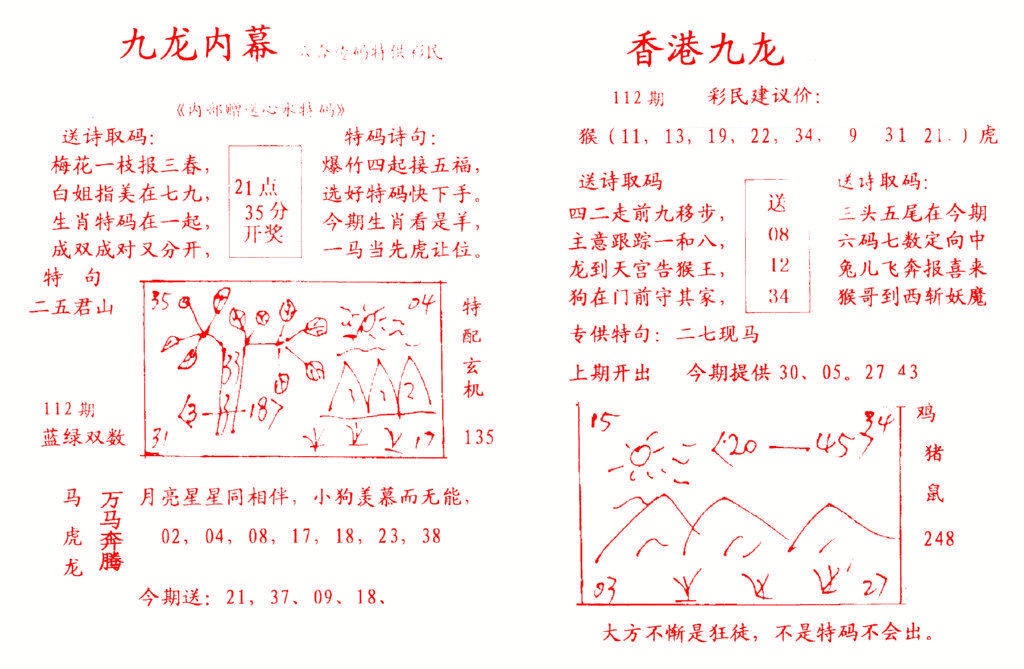 九龙内幕
特供彩民
《内部赠送心水特码》
送诗取码：
梅花一枝报三春，
白姐指美在七九，
生肖特码在一起，
成双成对又分开，
21点
35分
开奖
特码诗句：
爆竹四起接五福，
选好特码快下手。
今期生肖看是羊，
一马当先虎让位。
特 句
二五君山
112期
蓝绿双数
35
04
33
<3-3-18>
1
1
2
31
17
特配玄机
135
马虎龙
万马奔腾
月亮星星同相伴，小狗羡慕而无能，
02，04，08，17，18，23，38
今期送：21，37、09、18、
香港九龙
112期 彩民建议价：
猴（11，13，19，22，34， 9 31 21.）虎
送诗取码
四二走前九移步，
主意跟踪一和八，
龙到天宫告猴王，
狗在门前守其家，
送
08
12
34
送诗取码：
三头五尾在今期
六码七数定向中
兔儿飞奔报喜来
猴哥到西斩妖魔
专供特句：二七现马
上期开出 今期提供30、05。27 43
15
34
<20—45>
03
27
鸡
猪
鼠
248
大方不惭是狂徒，不是特码不会出。